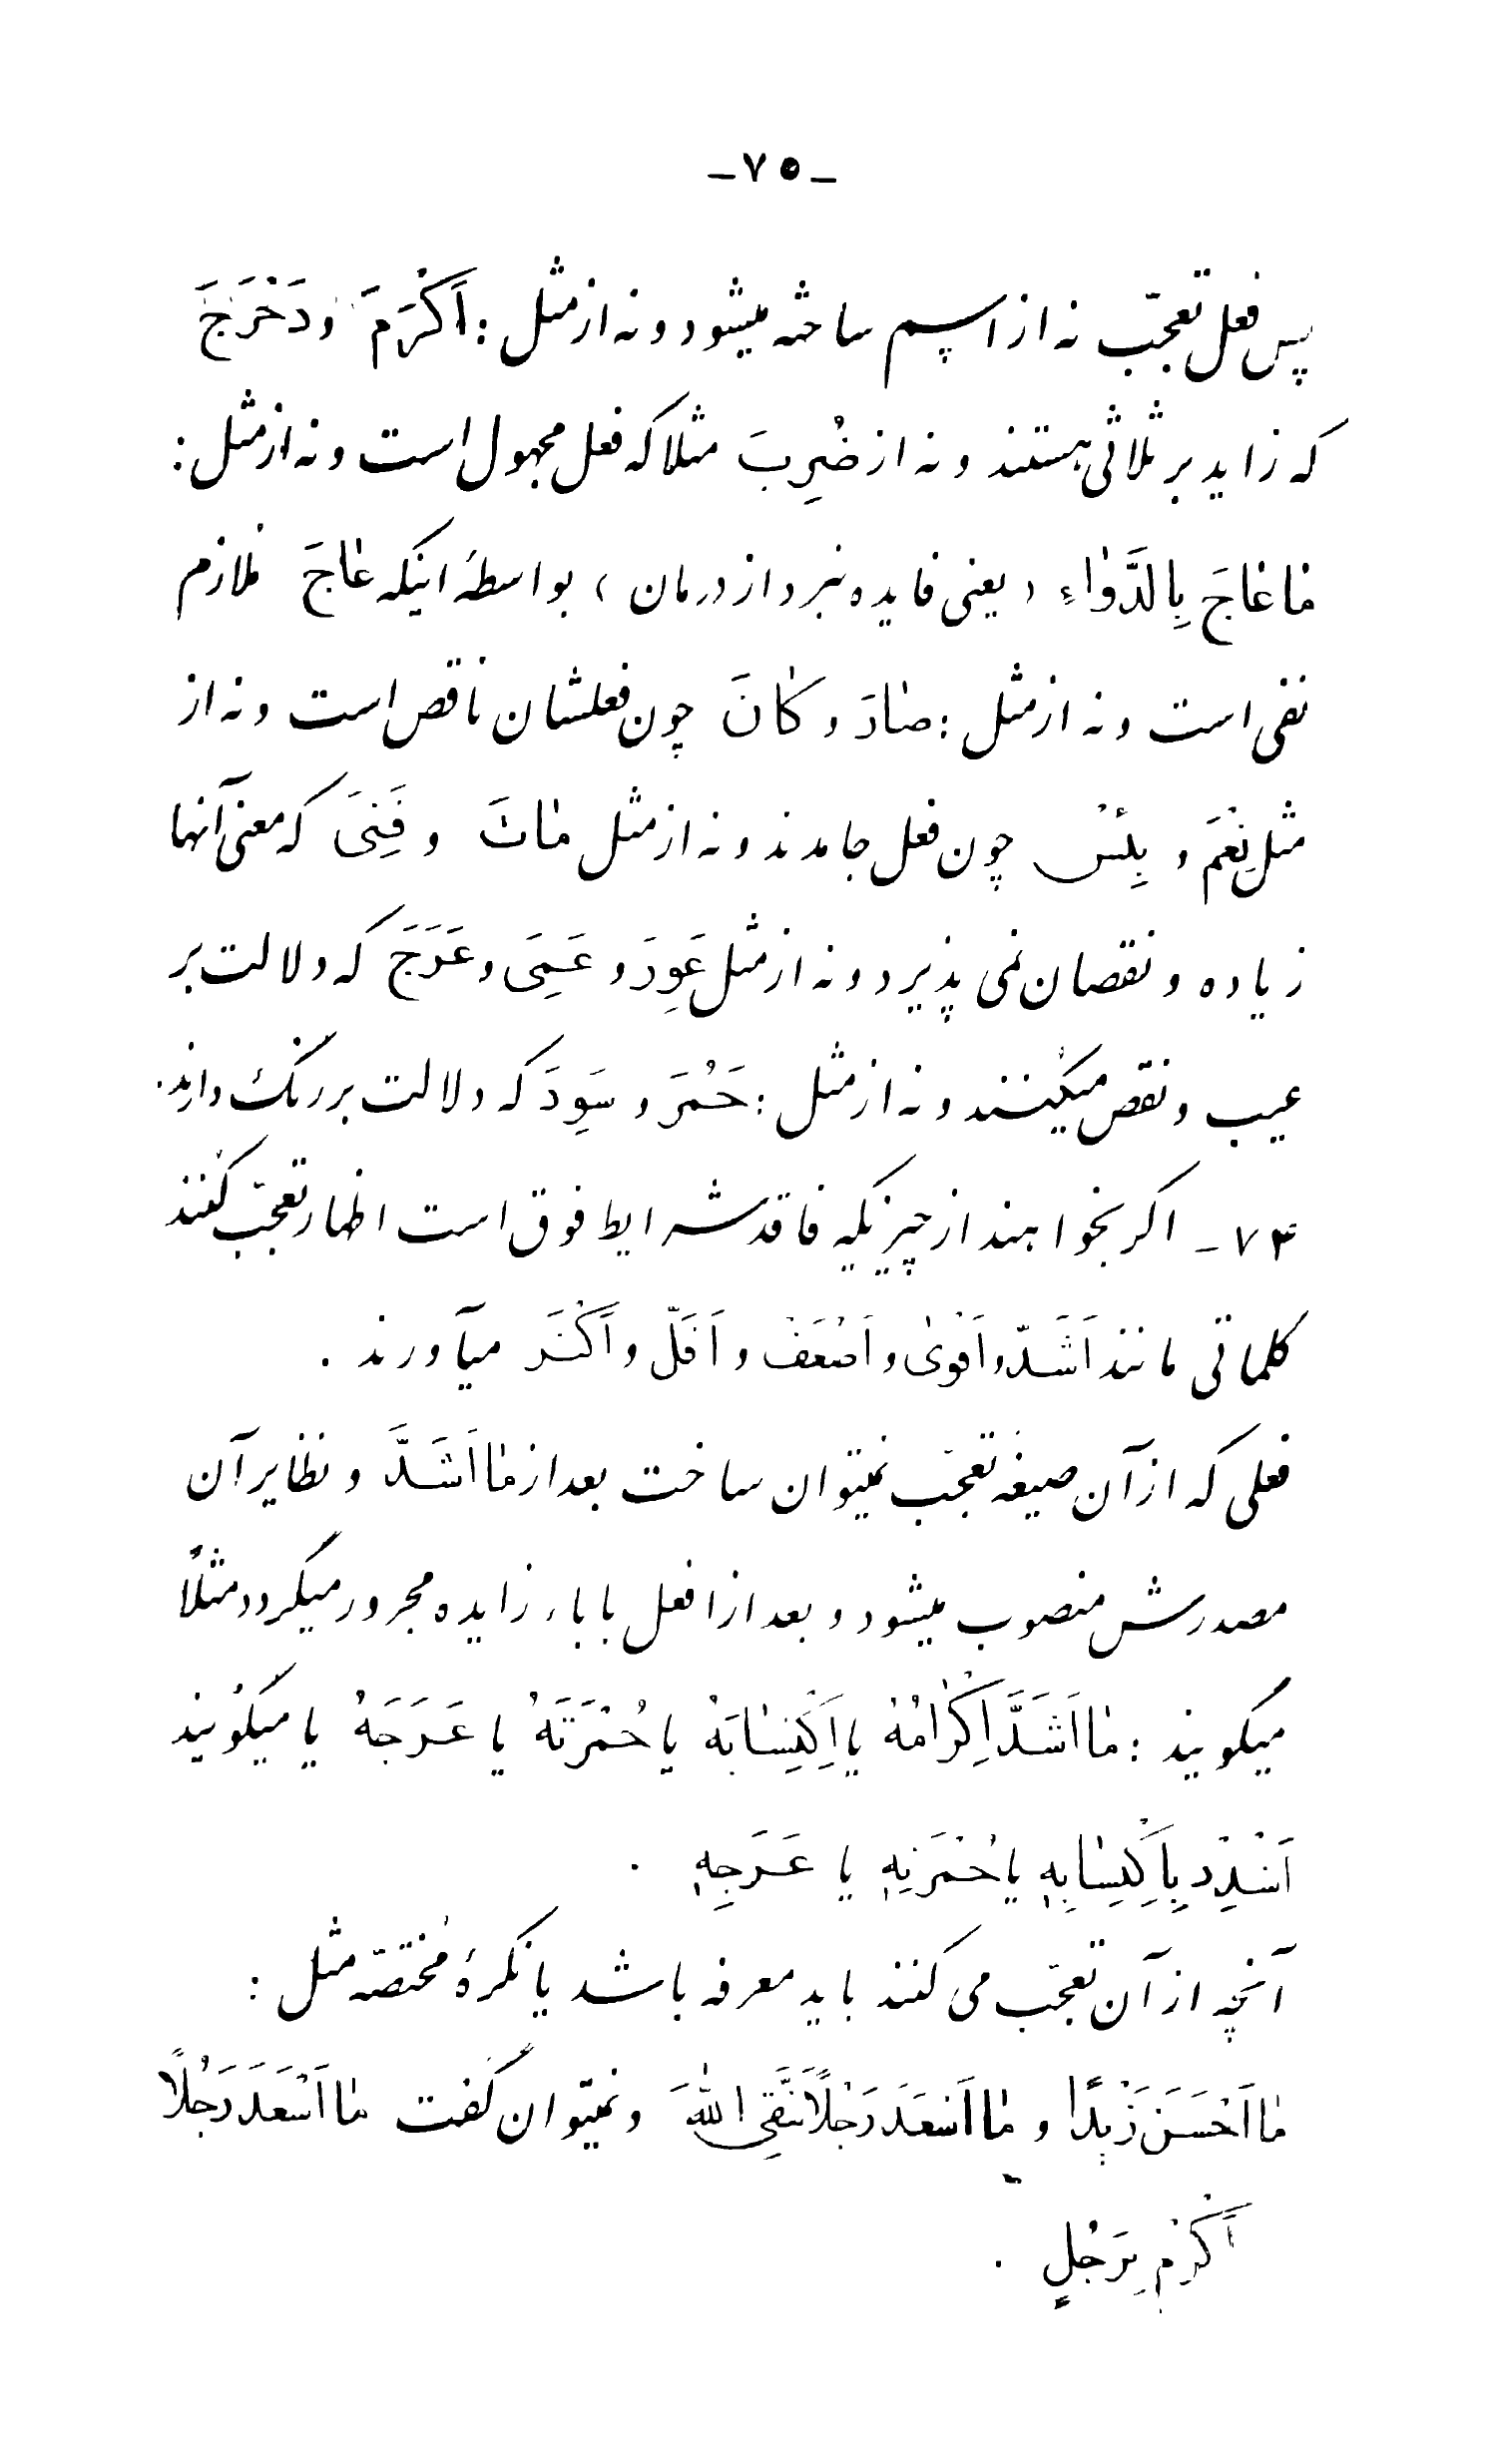 ـ ٧٥ ـ
پس فعل تعجّب نه از اسم ساخته میشود و نه از مثل : اَکْرَمَ وَ دَحْرَجَ
که زاید بر ثلاثی هستند و نه از ضُرِبَ مثلا که فعل مجهول است و نه از مثل :
مٰا عٰاجَ بِالدَّوٰاءِ ( یعنی فایده نبرد از درمان ) بواسطهٔ اینکه عٰاجَ ملازم
نفی است و نه از مثل : صٰارَ و کٰانَ چون فعلشان ناقص است و نه از
مثل نِعْمَ و بِئْسَ چون فعل جامدند و نه از مثل مٰاتَ و فَنِیَ که معنی آنها
زیاده و نقصان نمی پذیرد و نه از مثل عَوِرَ و عَمِیَ و عَرَجَ که دلالت بر
عیب و نقص میکنند و نه از مثل : حَمُرَ و سَوِدَ که دلالت بر رنگ دارند .
٧٣ ـ اگر بخواهند از چیزیکه فاقد شرایط فوق است اظهار تعجّب کنند
کلماتی مانند اَشَدّ و اَقْوىٰ و اَضْعَفْ و اَقَلّ و اَکْثَر میآورند .
فعلی که از آن صیغهٔ تعجّب نمیتوان ساخت بعد از مٰا اَشَدَّ و نظایر آن
مصدرش منصوب میشود و بعد از افعل با باء زایده مجرور میگردد مثلاً
میگویند : مٰا اَشَدَّ اِکْرٰامَهُ یا اِکْتِسٰابَهُ یا حُمْرَتَهُ یا عَرَجَهُ یا میگویند
اَشْدِدْ بِاِکْتِسٰابِهِ یا حُمْرَتِهِ یا عَرَجِهِ .
آنچه از آن تعجّب می کنند باید معرفه باشد یا نکرهٔ مُختصّه مثل :
مٰا اَحْسَنَ زَیْدًا و مٰا اَسْعَدَ رَجُلًا یَتَّقِی اللّٰهَ و نمیتوان گفت مٰا اَسْعَدَ رَجُلًا
اَکْرِمْ بِرَجُلٍ .